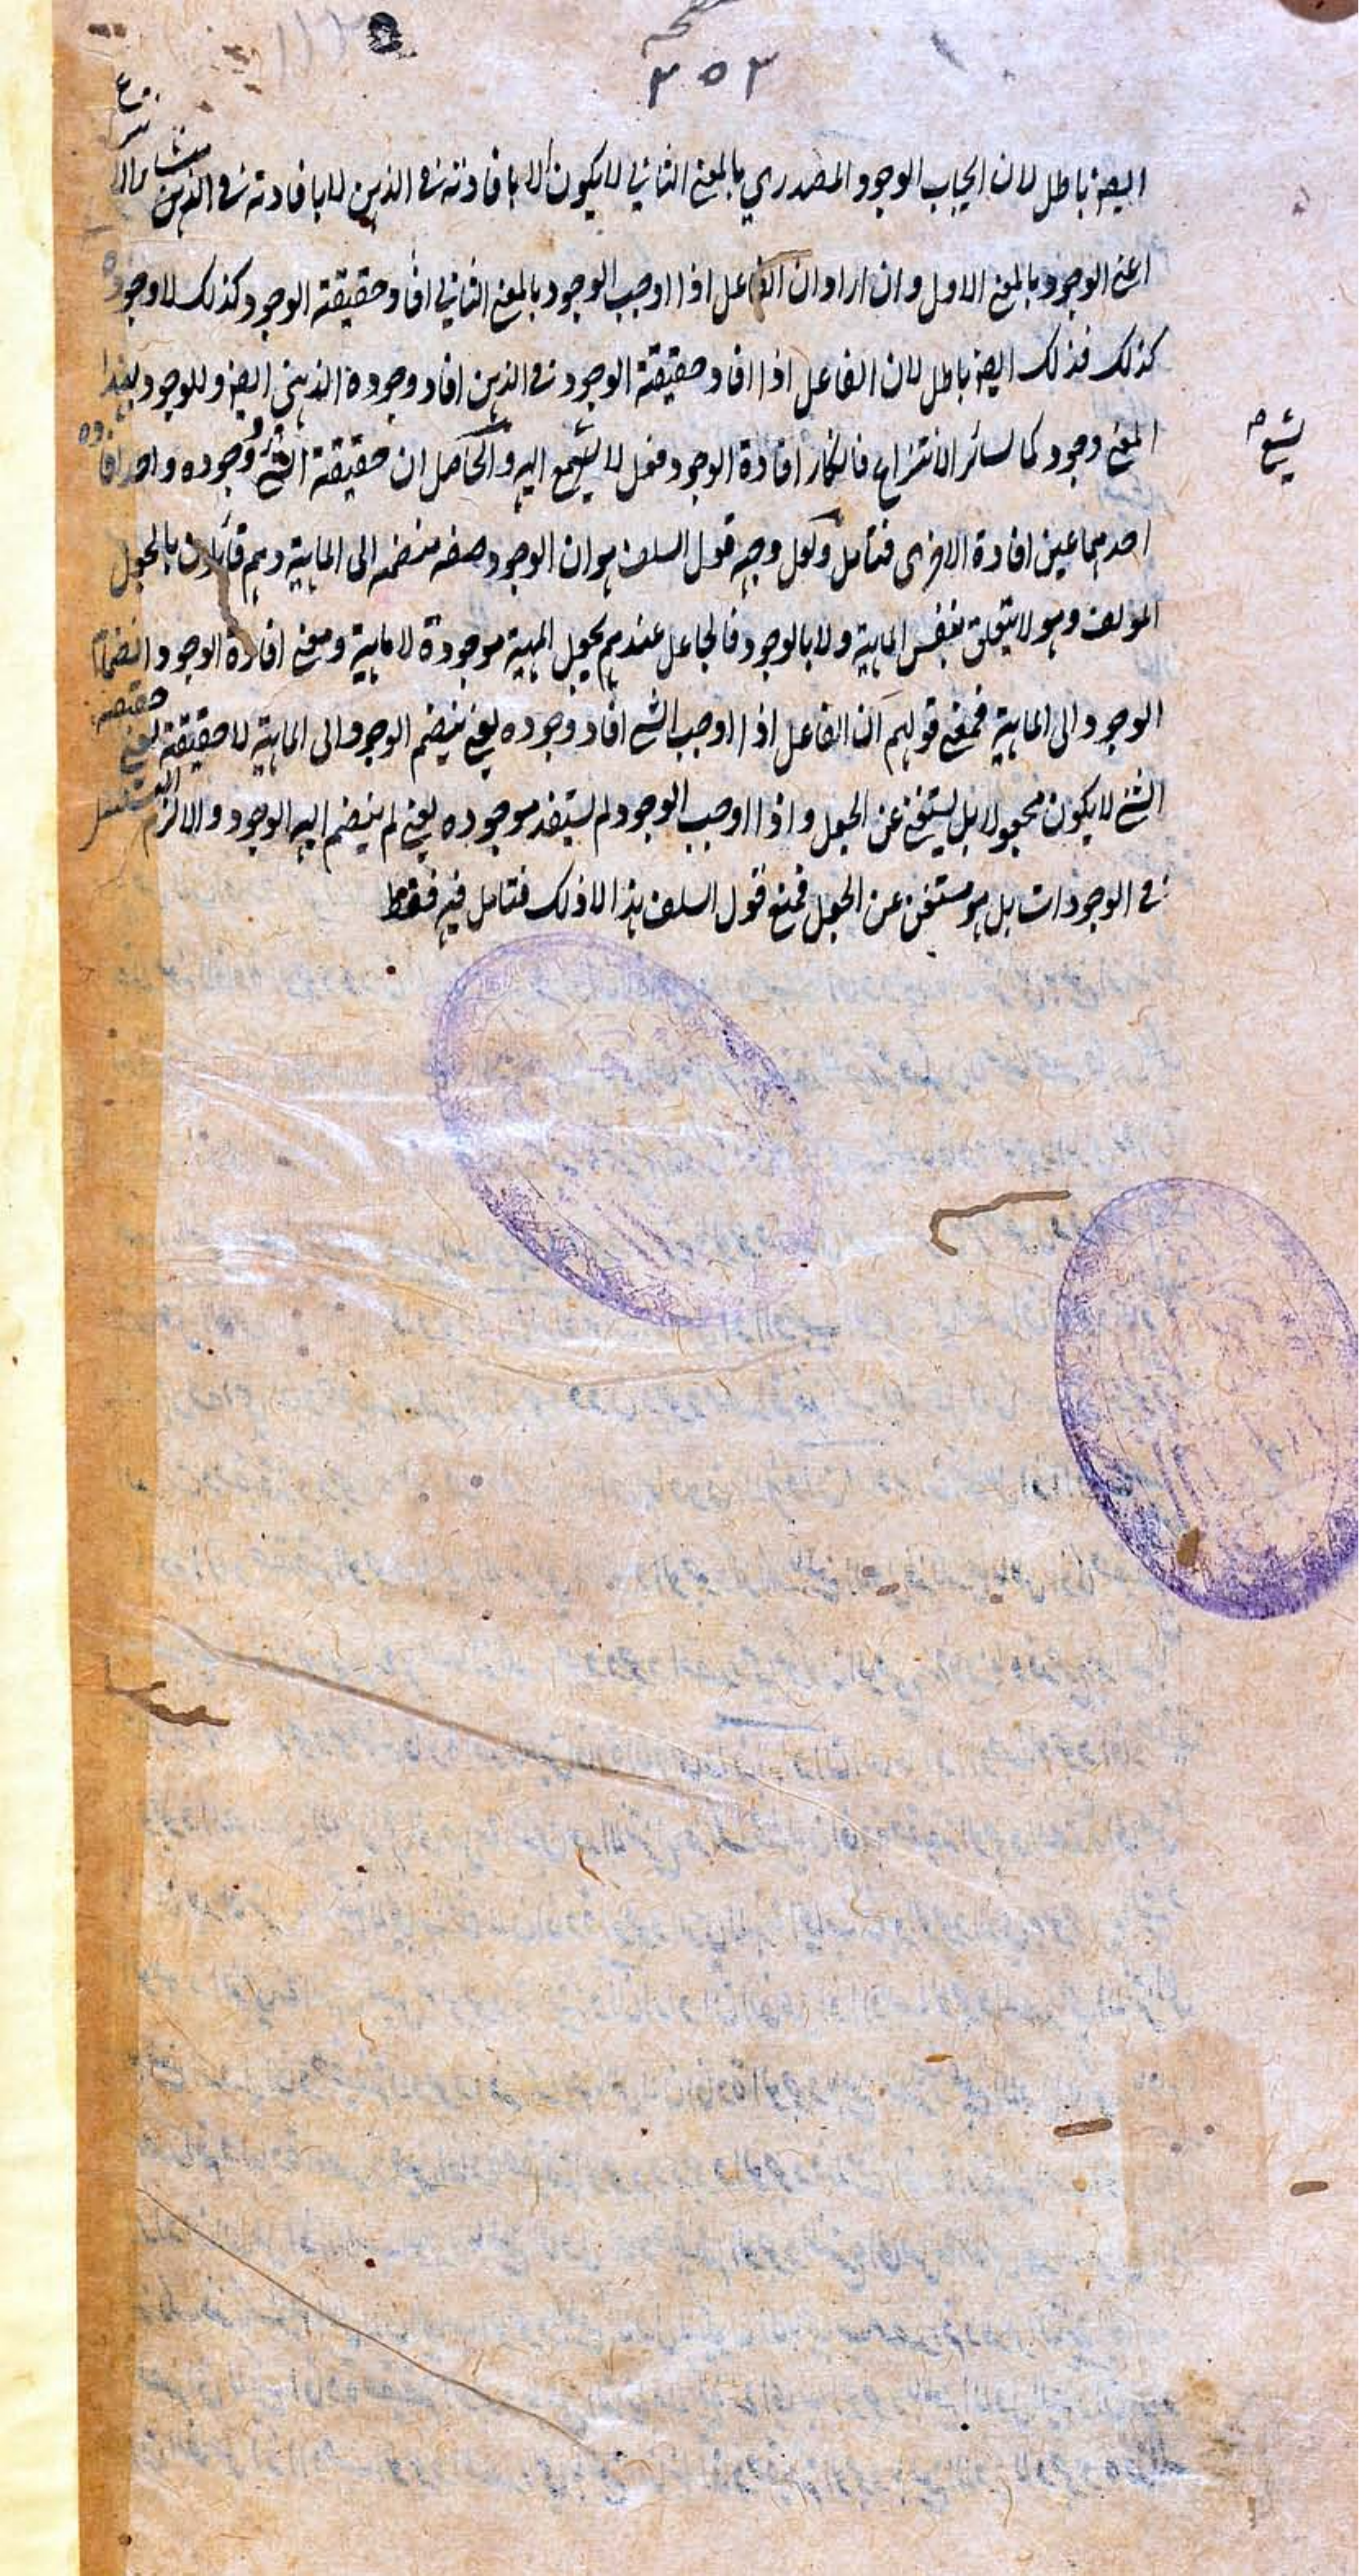 ٣٥٣
ايضا باطل لان ايجاب الوجود المصدري بالمعنى الثاني لا يكون الا بافادته في الذهن لا بافادته في الذهن
اعني الوجود بالمعنى الاول وان اراد ان الفاعل اذا اوجب الوجود بالمعنى الثاني افاد حقيقة الوجود كذلك لا وجوده
كذلك فذلك ايضا باطل لان الفاعل اذا افاد حقيقة الوجود في الذهن افاد وجوده الذهني ايضا وللوجود بهذا
المعنى وجود كما لسائر الانتزاع فانكار افادة الوجود فعل لا يسمع اليه والحاصل ان حقيقة الشئ ووجوده واحد افادة
احدهما عين افادة الاخرى فتأمل ولعل وجه قول السلف هو ان الوجود صفة منضمة الى الماهية وهم قائلون بالجعل
المؤلف وهو لا يتعلق بنفس الماهية ولا بالوجود فالجاعل عندهم يجعل المهية موجودة لا ماهية ومعنى افادة الوجود انضمام
الوجود الى الماهية فمعنى قولهم ان الفاعل اذا اوجب الشئ افاد وجوده يعني ينضم الوجود الى الماهية لا حقيقة يعني حقيقة
الشئ لا يكون مجعولا بل يستغني عن الجعل واذا اوجب الوجود لم يستفد موجوده يعني لم ينضم اليه الوجود والا لزم التسلسل
في الوجودات بل هو مستغن عن الجعل فمعنى قول السلف هذا لا ذلك فتامل فيه فقط